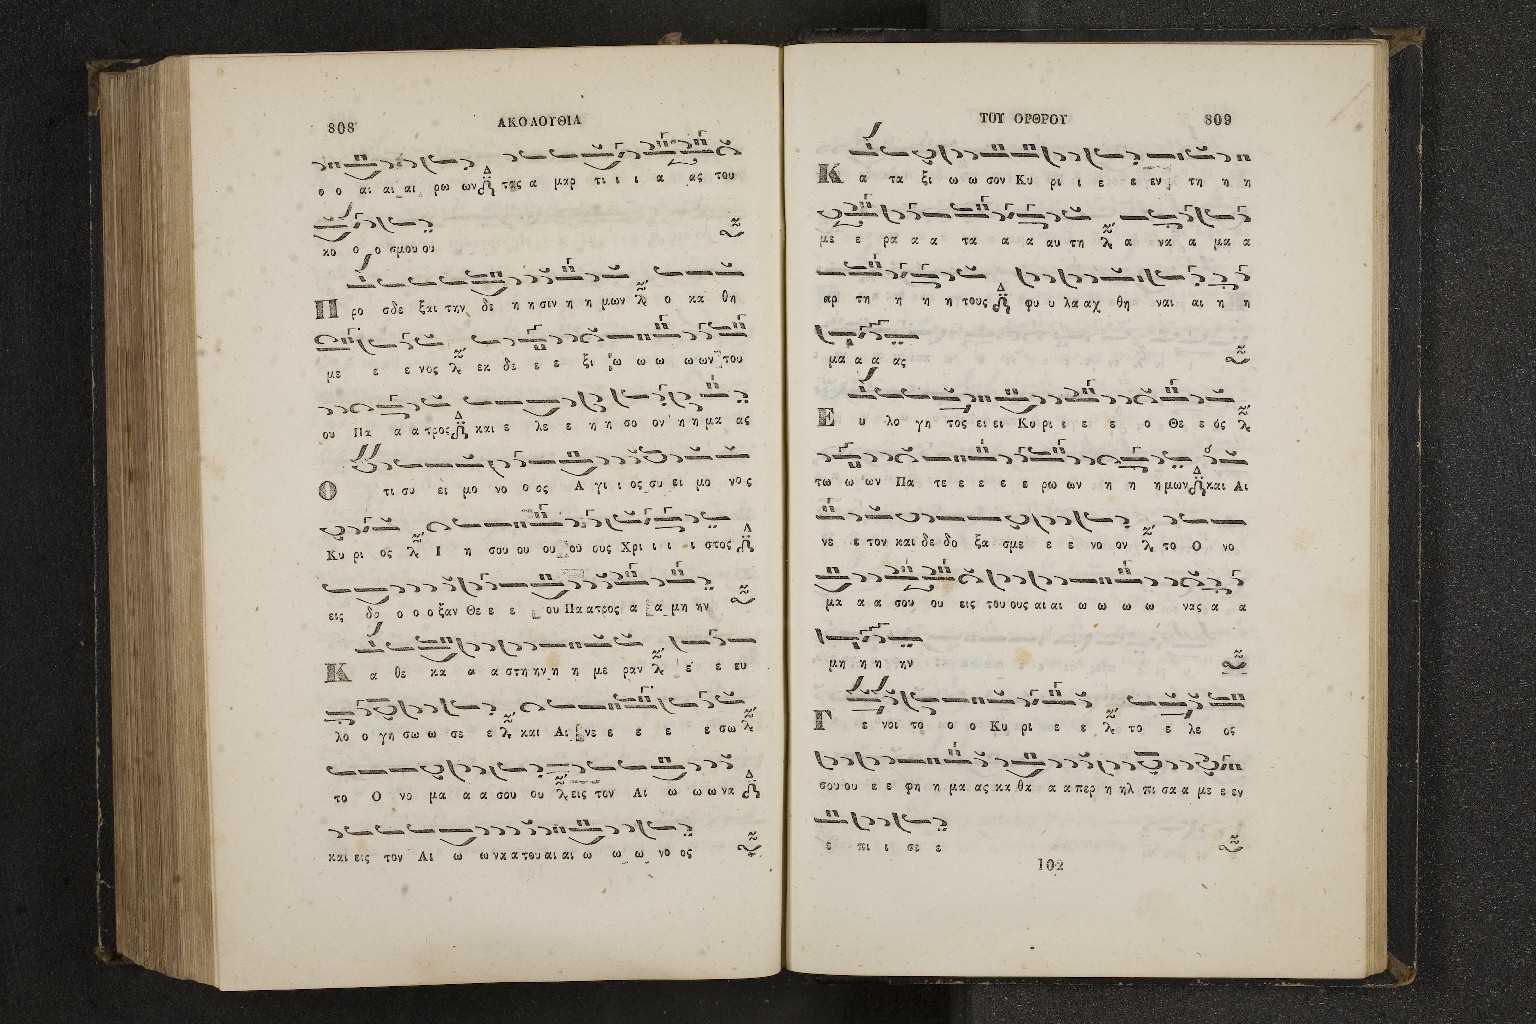 808 ΑΚΟΛΟΥΘΙΑ
ο ο αι αι αι ρω ων τας α μαρ τι ι ι α ας του
κο ο ο σμου ου
Π ρο σδε ξαι την δε η η σιν η η μων ο κα θη
με ε ε νος εκ δε ε ε ξι ω ω ω ω ων του
ου Πα α α τρος και ε λε ε η η σο ον η η μα ας
Ο τι συ ει μο νο ο ος Α γι ι ος συ ει μο νο ς
Κυ ρι ος Ι η σου ου ου ου ους Χρι ι ι ι στος
εις δο ο ο ο ξαν Θε ε ε ου Πα α τρος α α μη ην
Κ α θε κα α α στη ην η η με ραν ε ε ευ
λο ο γη σω ω σε ε και Αι νε ε ε ε ε ε σω
το Ο νο μα α α σου ου εις τον Αι ω ω ω να
και εις τον Αι ω ω να α του αι αι ω ω ω νο ος
ΤΟΥ ΟΡΘΡΟΥ 809
Κ α τα ξι ω ω σον Κυ ρι ι ε ε εν τη η η
με ε ρα α α τα α α αυ τη α να α μα α
αρ τη η η η τους φυ υ λα αχ θη ναι αι η η
μα α α ας
Ε υ λο γη τος ει ει Κυ ρι ε ε ε ο Θε ε ός
τω ω ων Πα τε ε ε ε ε ρω ων η η η μων και Αι
νε ε τον και δε δο ξα σμε ε ε νο ον το Ο νο
μα α α σου ου εις του ους αι αι ω ω ω ω νας α α
μη η η ην
Γ ε νοι το ο ο Κυ ρι ε ε το ε λε ος
σου ου ε ε φη η μα ας κα θα α α περ η ηλ πι σα α με ε εν
ε πι ι σε ε
102